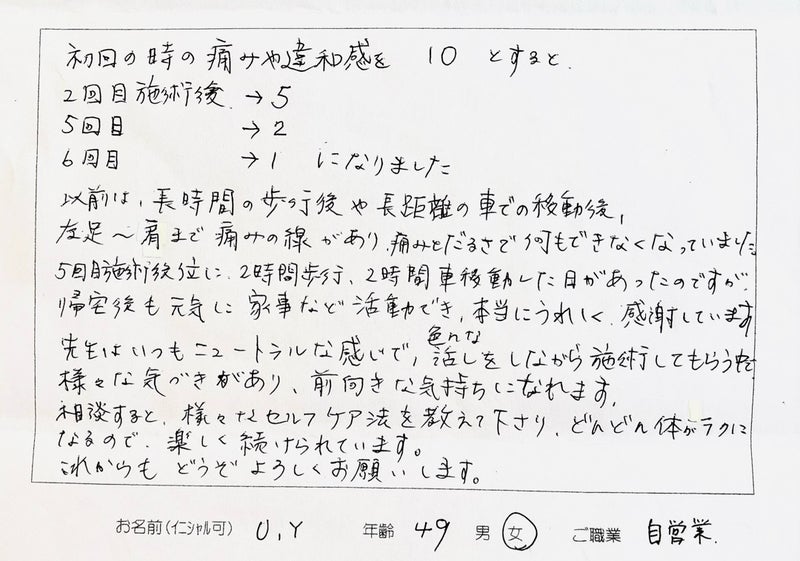 初回の時の痛みや違和感を 10 とすると、
2回目施術後 → 5
5回目 → 2
6回目 → 1 になりました
以前は、長時間の歩行後や長距離の車での移動後、
左足〜肩まで痛みの線があり、痛みとだるさで何もできなくなっていました
5回目施術後位に、2時間歩行、2時間車移動した日があったのですが、
帰宅後も元気に家事など活動でき、本当にうれしく、感謝しています
先生はいつもニュートラルな感じで、色んな話しをしながら施術してもらう中で
様々な気づきがあり、前向きな気持ちになれます。
相談すると、様々なセルフケア法を教えて下さり、どんどん体がラクに
なるので、楽しく続けられています。
これからもどうぞよろしくお願いします。
お名前(イニシャル可) U,Y 年齢 49 男 女 ご職業 自営業.